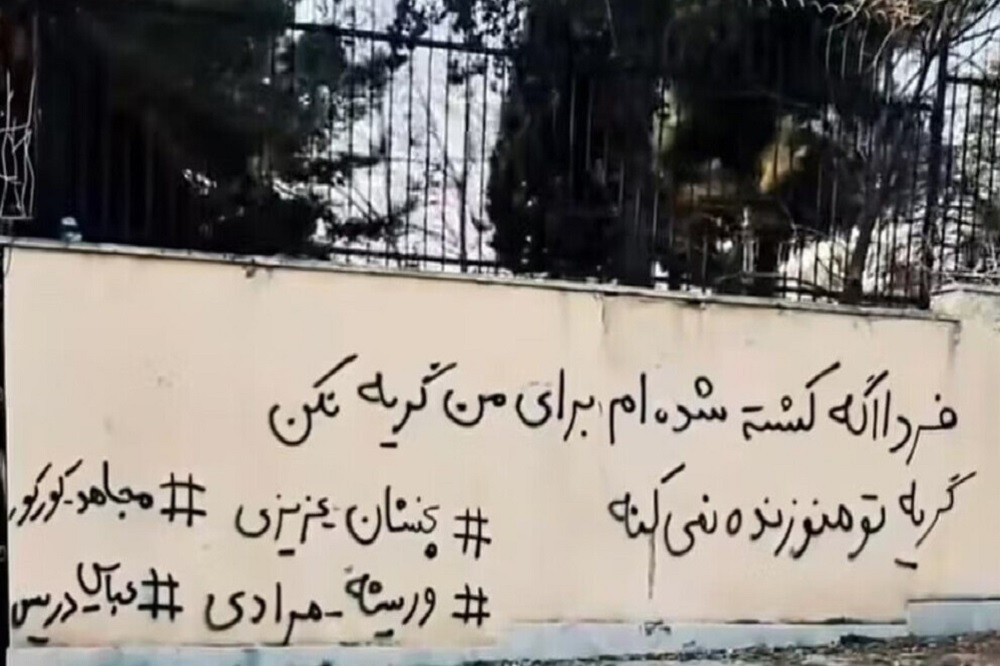 فردا اگه کشته شده ام، برای من گریه نکن
گریه تو منو زنده نمی کنه
#پخشان_عزیزی #مجاهد_کورکور
#وریشه_مرادی #عباس_دریس